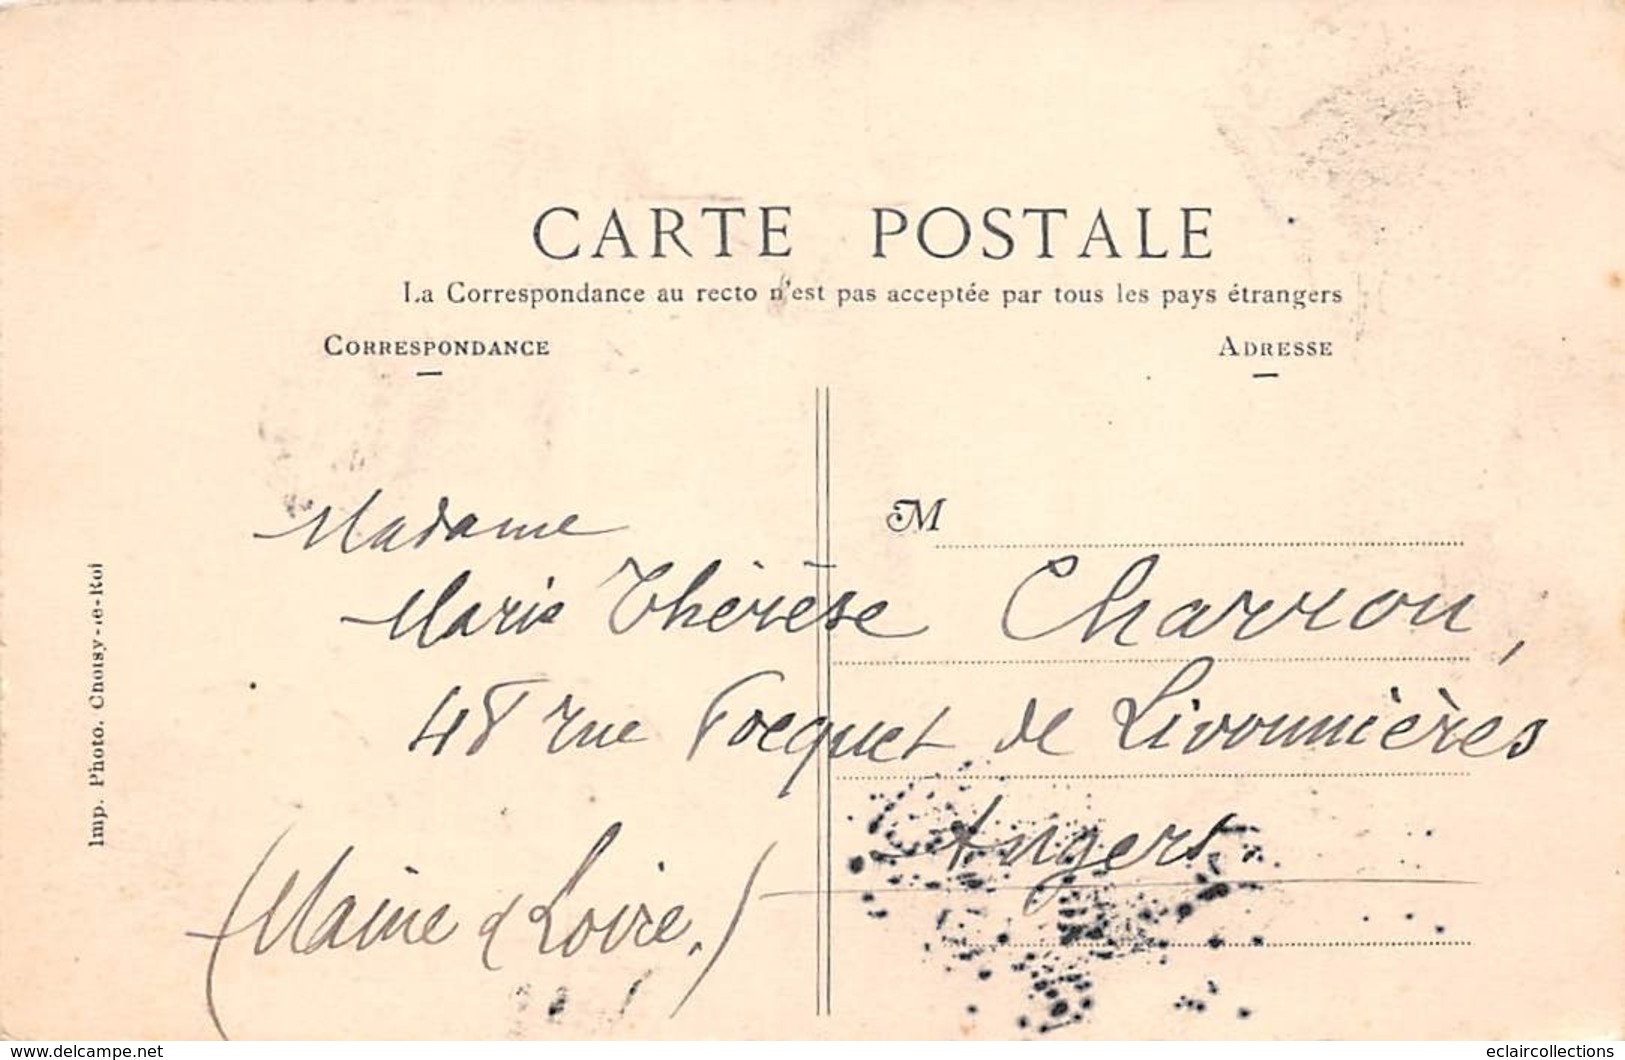 CARTE POSTALE
La Correspondance au recto n'est pas acceptée par tous les pays étrangers
CORRESPONDANCE
ADRESSE
M
Madame
Marie Thérèse Charron,
48 rue Focquet de Livonnières
Angers.
(Maine & Loire.)
Imp. Photo. Choisy-le-Roi
www.delcampe.net
eclaircollections